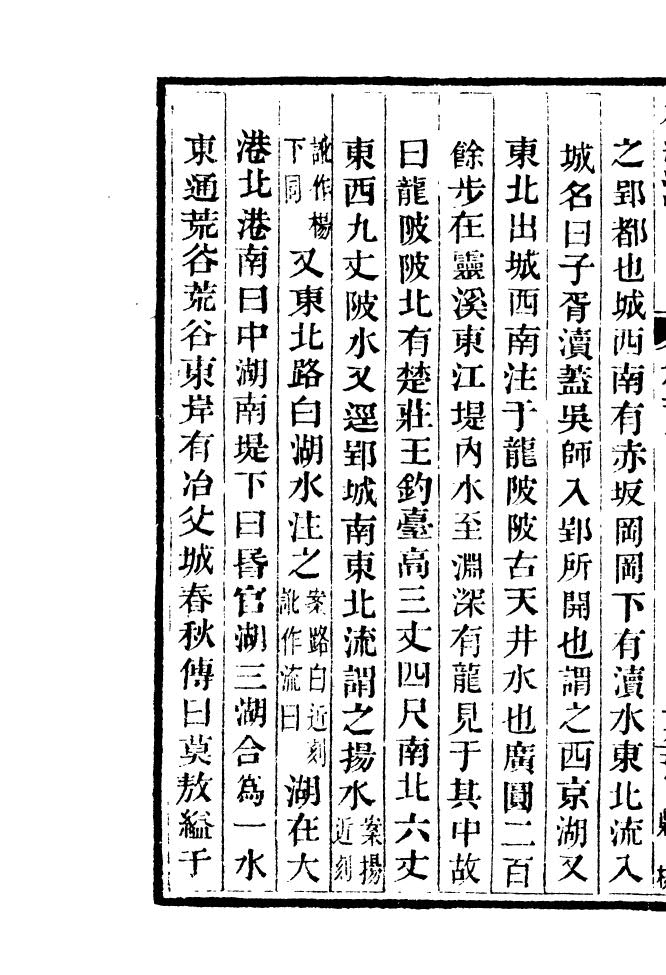 之郢都也城西南有赤坂岡岡下有瀆水東北流入
城名曰子胥瀆蓋吳師入郢所開也謂之西京湖又
東北出城西南注于龍陂陂古天井水也廣圓二百
餘步在靈溪東江堤內水至淵深有龍見于其中故
曰龍陂陂北有楚莊王釣臺高三丈四尺南北六丈
東西九丈陂水又逕郢城南東北流謂之揚水案揚近刻
訛作楊下同又東北路白湖水注之案路白近刻訛作流曰湖在大
港北港南曰中湖南堤下曰昬官湖三湖合為一水
東通荒谷荒谷東岸有冶父城春秋傳曰莫敖縊于